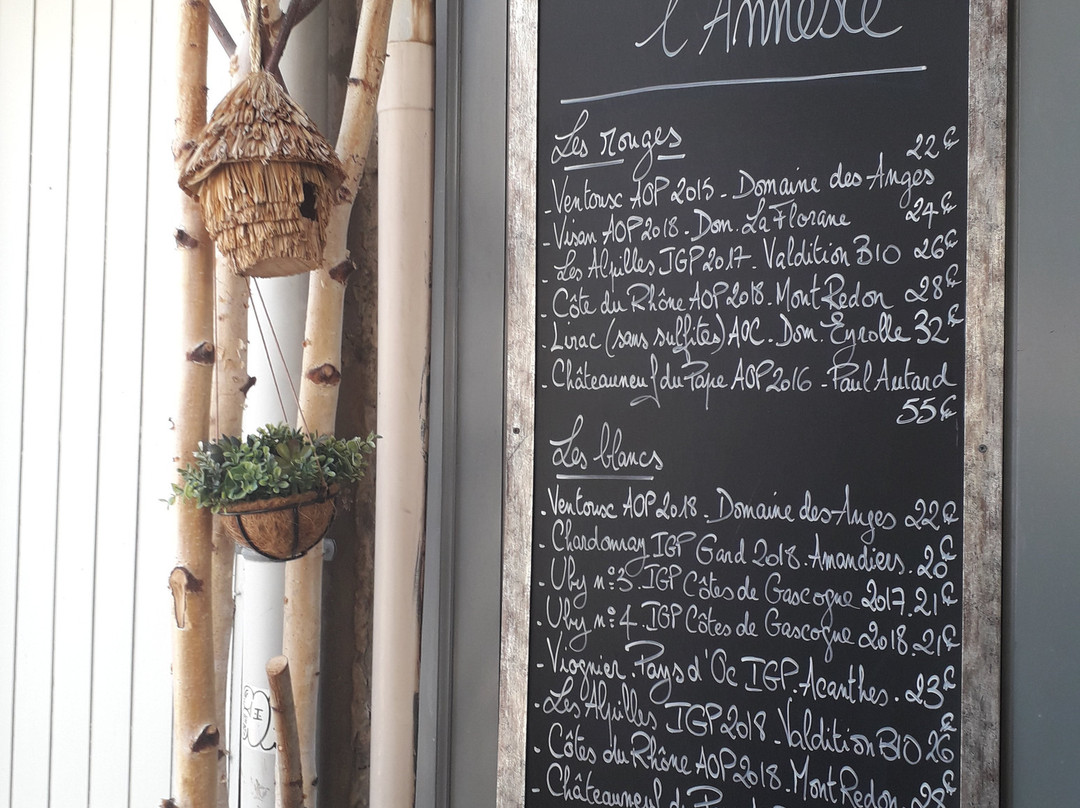 l'Annexe
Les rouges
- Ventoux AOP 2015 - Domaine des Anges 22€
- Visan AOP 2018 - Dom. La Florane 24€
- Les Alpilles IGP 2017. Valdition BIO 26€
- Côte du Rhône AOP 2018. Mont Redon 28€
- Lirac (sans sulfites) AOC. Dom. Eyrolle 32€
- Châteauneuf du Pape AOP 2016 - Paul Autard
55€
Les blancs
- Ventoux AOP 2018 - Domaine des Anges 22€
- Chardonnay IGP Gard 2018. Amandiers. 20€
- Uby n°3. IGP Côtes de Gascogne 2017. 21€
- Uby n°4. IGP Côtes de Gascogne 2018. 21€
- Viognier. Pays d'Oc IGP. Acanthes. 23€
- Les Alpilles IGP 2018 - Valdition BIO 26€
- Côtes du Rhône AOP 2018. Mont Redon
- Châteauneuf